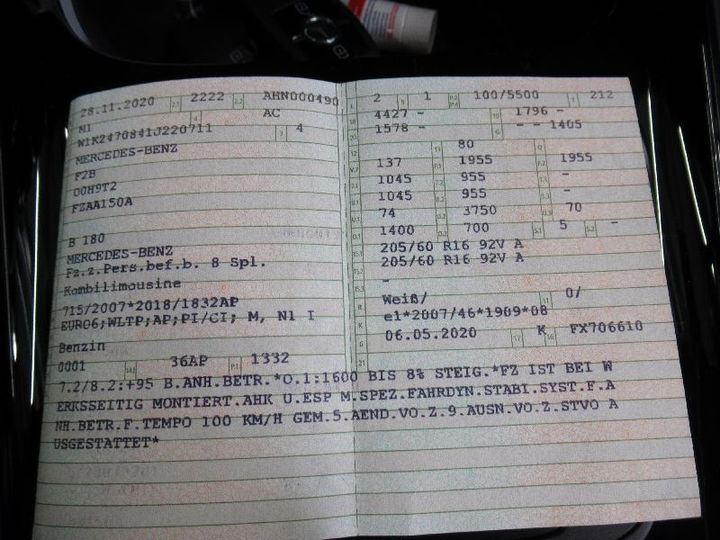 28.11.2020 2222 AHN000490
M1 AC
4
MERCEDES-BENZ
F2B
00H9T2
FZAA150A
B 180
MERCEDES-BENZ
Fz.z.Pers.bef.b. 8 Spl.
Kombilimousine
715/2007*2018/1832AP
EURO6;WLTP;AP;PI/CI; M, N1 I
Benzin
0001 36AP 1332
2 1 100/5500 212
4427 - 1796 -
1578 - - - 1405
80
137 1955 1955
1045 955 -
1045 955 -
74 3750 70
1400 700 5 -
205/60 R16 92V A
205/60 R16 92V A
-
Weiß/ 0/
e1*2007/46*1909*08
06.05.2020 K FX706610
7.2/8.2:+95 B.ANH.BETR.*O.1:1600 BIS 8% STEIG.*FZ IST BEI W
ERKSSEITIG MONTIERT.AHK U.ESP M.SPEZ.FAHRDYN.STABI.SYST.F.A
NH.BETR.F.TEMPO 100 KM/H GEM.5.AEND.VO.Z.9.AUSN.VO.Z.STVO A
USGESTATTET*